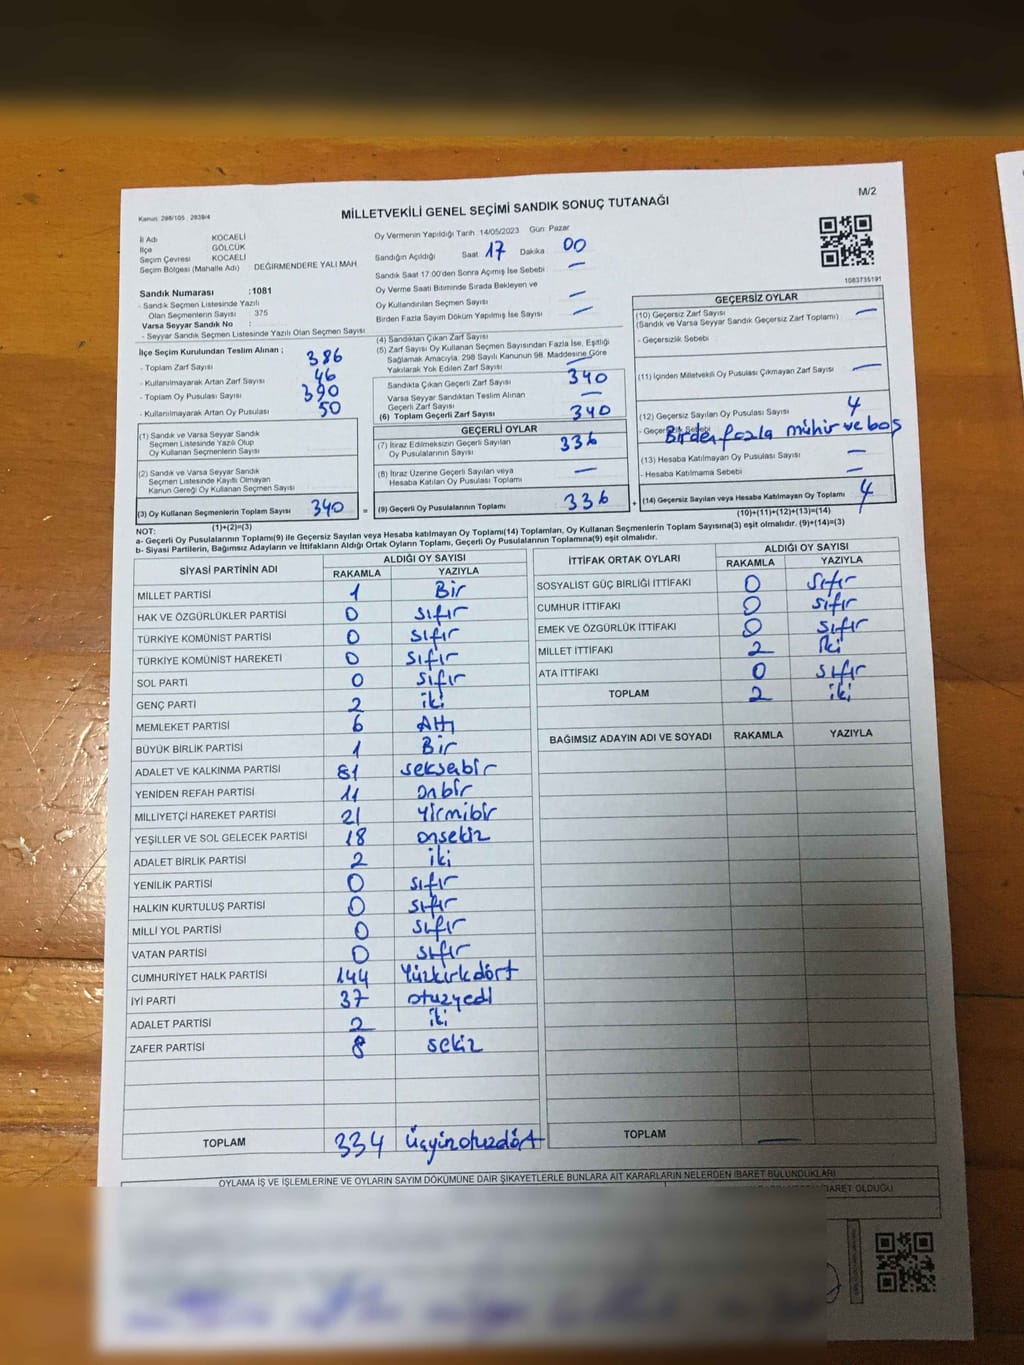 Kanun: 298/105 2839/4
MİLLETVEKİLİ GENEL SEÇİMİ SANDIK SONUÇ TUTANAĞI
M/2
İl Adı KOCAELİ
İlçe GÖLCÜK
Seçim Çevresi KOCAELİ
Seçim Bölgesi (Mahalle Adı) DEĞİRMENDERE YALI MAH
Sandık Numarası :1081
- Sandık Seçmen Listesinde Yazılı
Olan Seçmenlerin Sayısı 375
Varsa Seyyar Sandık No :
- Seyyar Sandık Seçmen Listesinde Yazılı Olan Seçmen Sayısı
Oy Vermenin Yapıldığı Tarih 14/05/2023 Gün: Pazar
Sandığın Açıldığı Saat 17 Dakika 00
Sandık Saat 17:00'den Sonra Açılmış İse Sebebi —
Oy Verme Saati Bitiminde Sırada Bekleyen ve
Oy Kullandırılan Seçmen Sayısı —
Birden Fazla Sayım Döküm Yapılmış İse Sayısı —
1083735191
İlçe Seçim Kurulundan Teslim Alınan ;
- Toplam Zarf Sayısı 386
- Kullanılmayarak Artan Zarf Sayısı 46
- Toplam Oy Pusulası Sayısı 390
- Kullanılmayarak Artan Oy Pusulası 50
(1) Sandık ve Varsa Seyyar Sandık
Seçmen Listesinde Yazılı Olup
Oy Kullanan Seçmenlerin Sayısı
(2) Sandık ve Varsa Seyyar Sandık
Seçmen Listesinde Kayıtlı Olmayan
Kanun Gereği Oy Kullanan Seçmen Sayısı
(3) Oy Kullanan Seçmenlerin Toplam Sayısı 340 =
(1)+(2)=(3)
(4) Sandıktan Çıkan Zarf Sayısı
(5) Zarf Sayısı Oy Kullanan Seçmen Sayısından Fazla İse, Eşitliği
Sağlamak Amacıyla, 298 Sayılı Kanunun 98. Maddesine Göre
Yakılarak Yok Edilen Zarf Sayısı —
Sandıkta Çıkan Geçerli Zarf Sayısı 340
Varsa Seyyar Sandıktan Teslim Alınan
Geçerli Zarf Sayısı —
(6) Toplam Geçerli Zarf Sayısı 340
GEÇERLİ OYLAR
(7) İtiraz Edilmeksizin Geçerli Sayılan
Oy Pusulasının Sayısı 336
(8) İtiraz Üzerine Geçerli Sayılan veya
Hesaba Katılan Oy Pusulası Toplamı —
(9) Geçerli Oy Pusulalarının Toplamı 336 +
GEÇERSİZ OYLAR
(10) Geçersiz Zarf Sayısı —
(Sandık ve Varsa Seyyar Sandık Geçersiz Zarf Toplamı)
- Geçersizlik Sebebi
(11) İçinden Milletvekili Oy Pusulası Çıkmayan Zarf Sayısı —
(12) Geçersiz Sayılan Oy Pusulası Sayısı 4
- Geçersizlik Sebebi Birden fazla mühür ve boş
(13) Hesaba Katılmayan Oy Pusulası Sayısı —
- Hesaba Katılmama Sebebi —
(14) Geçersiz Sayılan veya Hesaba Katılmayan Oy Toplamı 4
(10)+(11)+(12)+(13)=(14)
NOT:
a- Geçerli Oy Pusulalarının Toplamı(9) ile Geçersiz Sayılan veya Hesaba Katılmayan Oy Toplamı(14) Toplamları, Oy Kullanan Seçmenlerin Toplam Sayısına(3) eşit olmalıdır. (9)+(14)=(3)
b- Siyasi Partilerin, Bağımsız Adayların ve İttifakların Aldığı Ortak Oyların Toplamı, Geçerli Oy Pusulalarının Toplamına(9) eşit olmalıdır.
SİYASİ PARTİNİN ADI ALDIĞI OY SAYISI
RAKAMLA YAZIYLA
MİLLET PARTİSİ 1 Bir
HAK VE ÖZGÜRLÜKLER PARTİSİ 0 sıfır
TÜRKİYE KOMÜNİST PARTİSİ 0 sıfır
TÜRKİYE KOMÜNİST HAREKETİ 0 sıfır
SOL PARTİ 0 sıfır
GENÇ PARTİ 2 iki
MEMLEKET PARTİSİ 6 Altı
BÜYÜK BİRLİK PARTİSİ 1 Bir
ADALET VE KALKINMA PARTİSİ 81 seksebir
YENİDEN REFAH PARTİSİ 11 onbir
MİLLİYETÇİ HAREKET PARTİSİ 21 Yirmibir
YEŞİLLER VE SOL GELECEK PARTİSİ 18 onsekiz
ADALET BİRLİK PARTİSİ 2 iki
YENİLİK PARTİSİ 0 sıfır
HALKIN KURTULUŞ PARTİSİ 0 sıfır
MİLLİ YOL PARTİSİ 0 sıfır
VATAN PARTİSİ 0 sıfır
CUMHURİYET HALK PARTİSİ 144 Yüzkırkdört
İYİ PARTİ 37 otuzyedi
ADALET PARTİSİ 2 iki
ZAFER PARTİSİ 8 sekiz
TOPLAM 334 üçyüzotuzdört
İTTİFAK ORTAK OYLARI ALDIĞI OY SAYISI
RAKAMLA YAZIYLA
SOSYALİST GÜÇ BİRLİĞİ İTTİFAKI 0 sıfır
CUMHUR İTTİFAKI 0 sıfır
EMEK VE ÖZGÜRLÜK İTTİFAKI 0 sıfır
MİLLET İTTİFAKI 2 iki
ATA İTTİFAKI 0 sıfır
TOPLAM 2 iki
BAĞIMSIZ ADAYIN ADI VE SOYADI RAKAMLA YAZIYLA
TOPLAM —
OYLAMA İŞ VE İŞLEMLERİNE VE OYLARIN SAYIM DÖKÜMÜNE DAİR ŞİKAYETLERLE BUNLARA AİT KARARLARIN NELERDEN İBARET BULUNDUKLARI
İBARET OLDUĞU